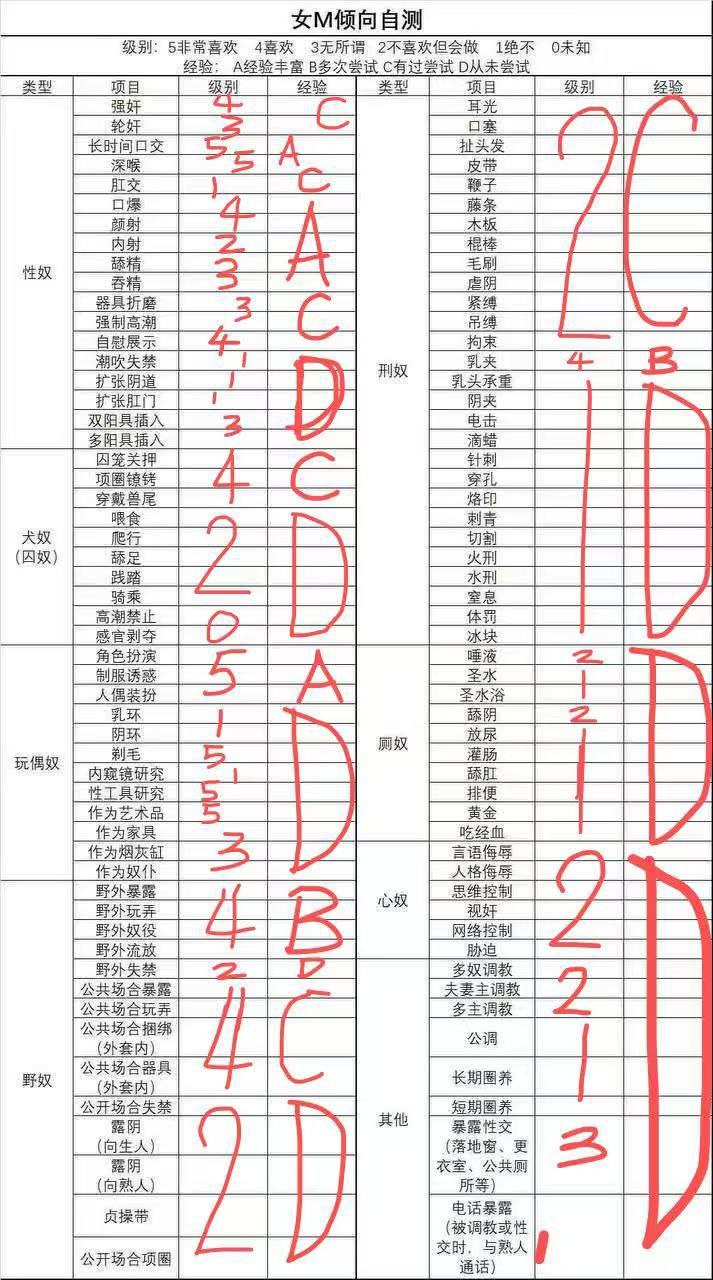 女M倾向自测
级别：5非常喜欢 4喜欢 3无所谓 2不喜欢但会做 1绝不 0未知
经验： A经验丰富 B多次尝试 C有过尝试 D从未尝试
类型 项目 级别 经验 类型 项目 级别 经验
性奴
强奸 4 C
轮奸 3
长时间口交 5 A
深喉 5
肛交 1 C
口爆 4 A
颜射
内射 2
舔精 3
吞精 3
器具折磨 3 C
强制高潮
自慰展示 4
潮吹失禁 1 D
扩张阴道 1
扩张肛门 1
双阳具插入 3
多阳具插入
犬奴
（囚奴）
囚笼关押 4 C
项圈镣铐
穿戴兽尾
喂食 2 D
爬行
舔足
践踏
骑乘
高潮禁止 0
感官剥夺
玩偶奴
角色扮演 5 A
制服诱惑
人偶装扮
乳环 1 D
阴环
剃毛 5
内窥镜研究 1
性工具研究 5
作为艺术品 5
作为家具
作为烟灰缸 3
作为奴仆
野奴
野外暴露 4 B
野外玩弄
野外奴役
野外流放
野外失禁 2 D
公共场合暴露 4 C
公共场合玩弄
公共场合捆绑
（外套内）
公共场合器具
（外套内）
公开场合失禁 2 D
露阴
（向生人）
露阴
（向熟人）
贞操带
公开场合项圈
刑奴
耳光 2 C
口塞
扯头发
皮带
鞭子
藤条
木板
棍棒
毛刷
虐阴
紧缚
吊缚
拘束
乳夹 4 B
乳头承重 1 D
阴夹
电击
滴蜡
针刺
穿孔
烙印
刺青
切割
火刑
水刑
窒息
体罚
冰块
厕奴
唾液 2 D
圣水 1
圣水浴
舔阴 2
放尿 1
灌肠
舔肛
排便
黄金
吃经血
心奴
言语侮辱 2 D
人格侮辱
思维控制
视奸
网络控制
胁迫
其他
多奴调教 2
夫妻主调教
多主调教
公调 1
长期圈养
短期圈养
暴露性交 3
（落地窗、更
衣室、公共厕
所等）
电话暴露 1
（被调教或性
交时，与熟人
通话）